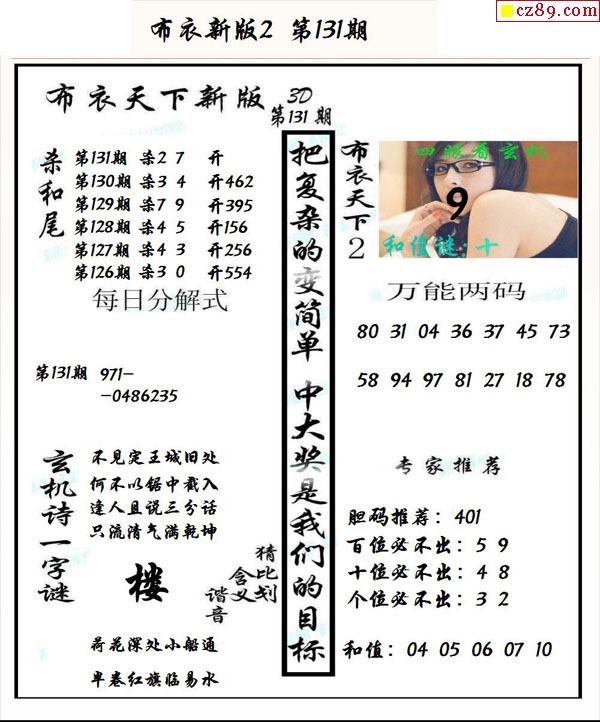 cz89.com
布衣新版2 第131期
布衣天下新版 3D
第131期
杀和尾
第131期 杀2 7 开
第130期 杀3 4 开462
第129期 杀7 9 开395
第128期 杀4 5 开156
第127期 杀4 3 开256
第126期 杀3 0 开554
每日分解式
第131期 971-
-0486235
玄机诗一字谜
不见定王城旧处
何不以锯中截入
逢人且说三分话
只流清气满乾坤
楼
猜比划
含义
谐音
荷花深处小船通
半卷红旗临易水
把复杂的变简单 中大奖是我们的目标
布衣天下2
四眼看玄机
9
和值谜:十
万能两码
80 31 04 36 37 45 73
58 94 97 81 27 18 78
专家推荐
胆码推荐:401
百位必不出:5 9
十位必不出:4 8
个位必不出:3 2
和值:04 05 06 07 10